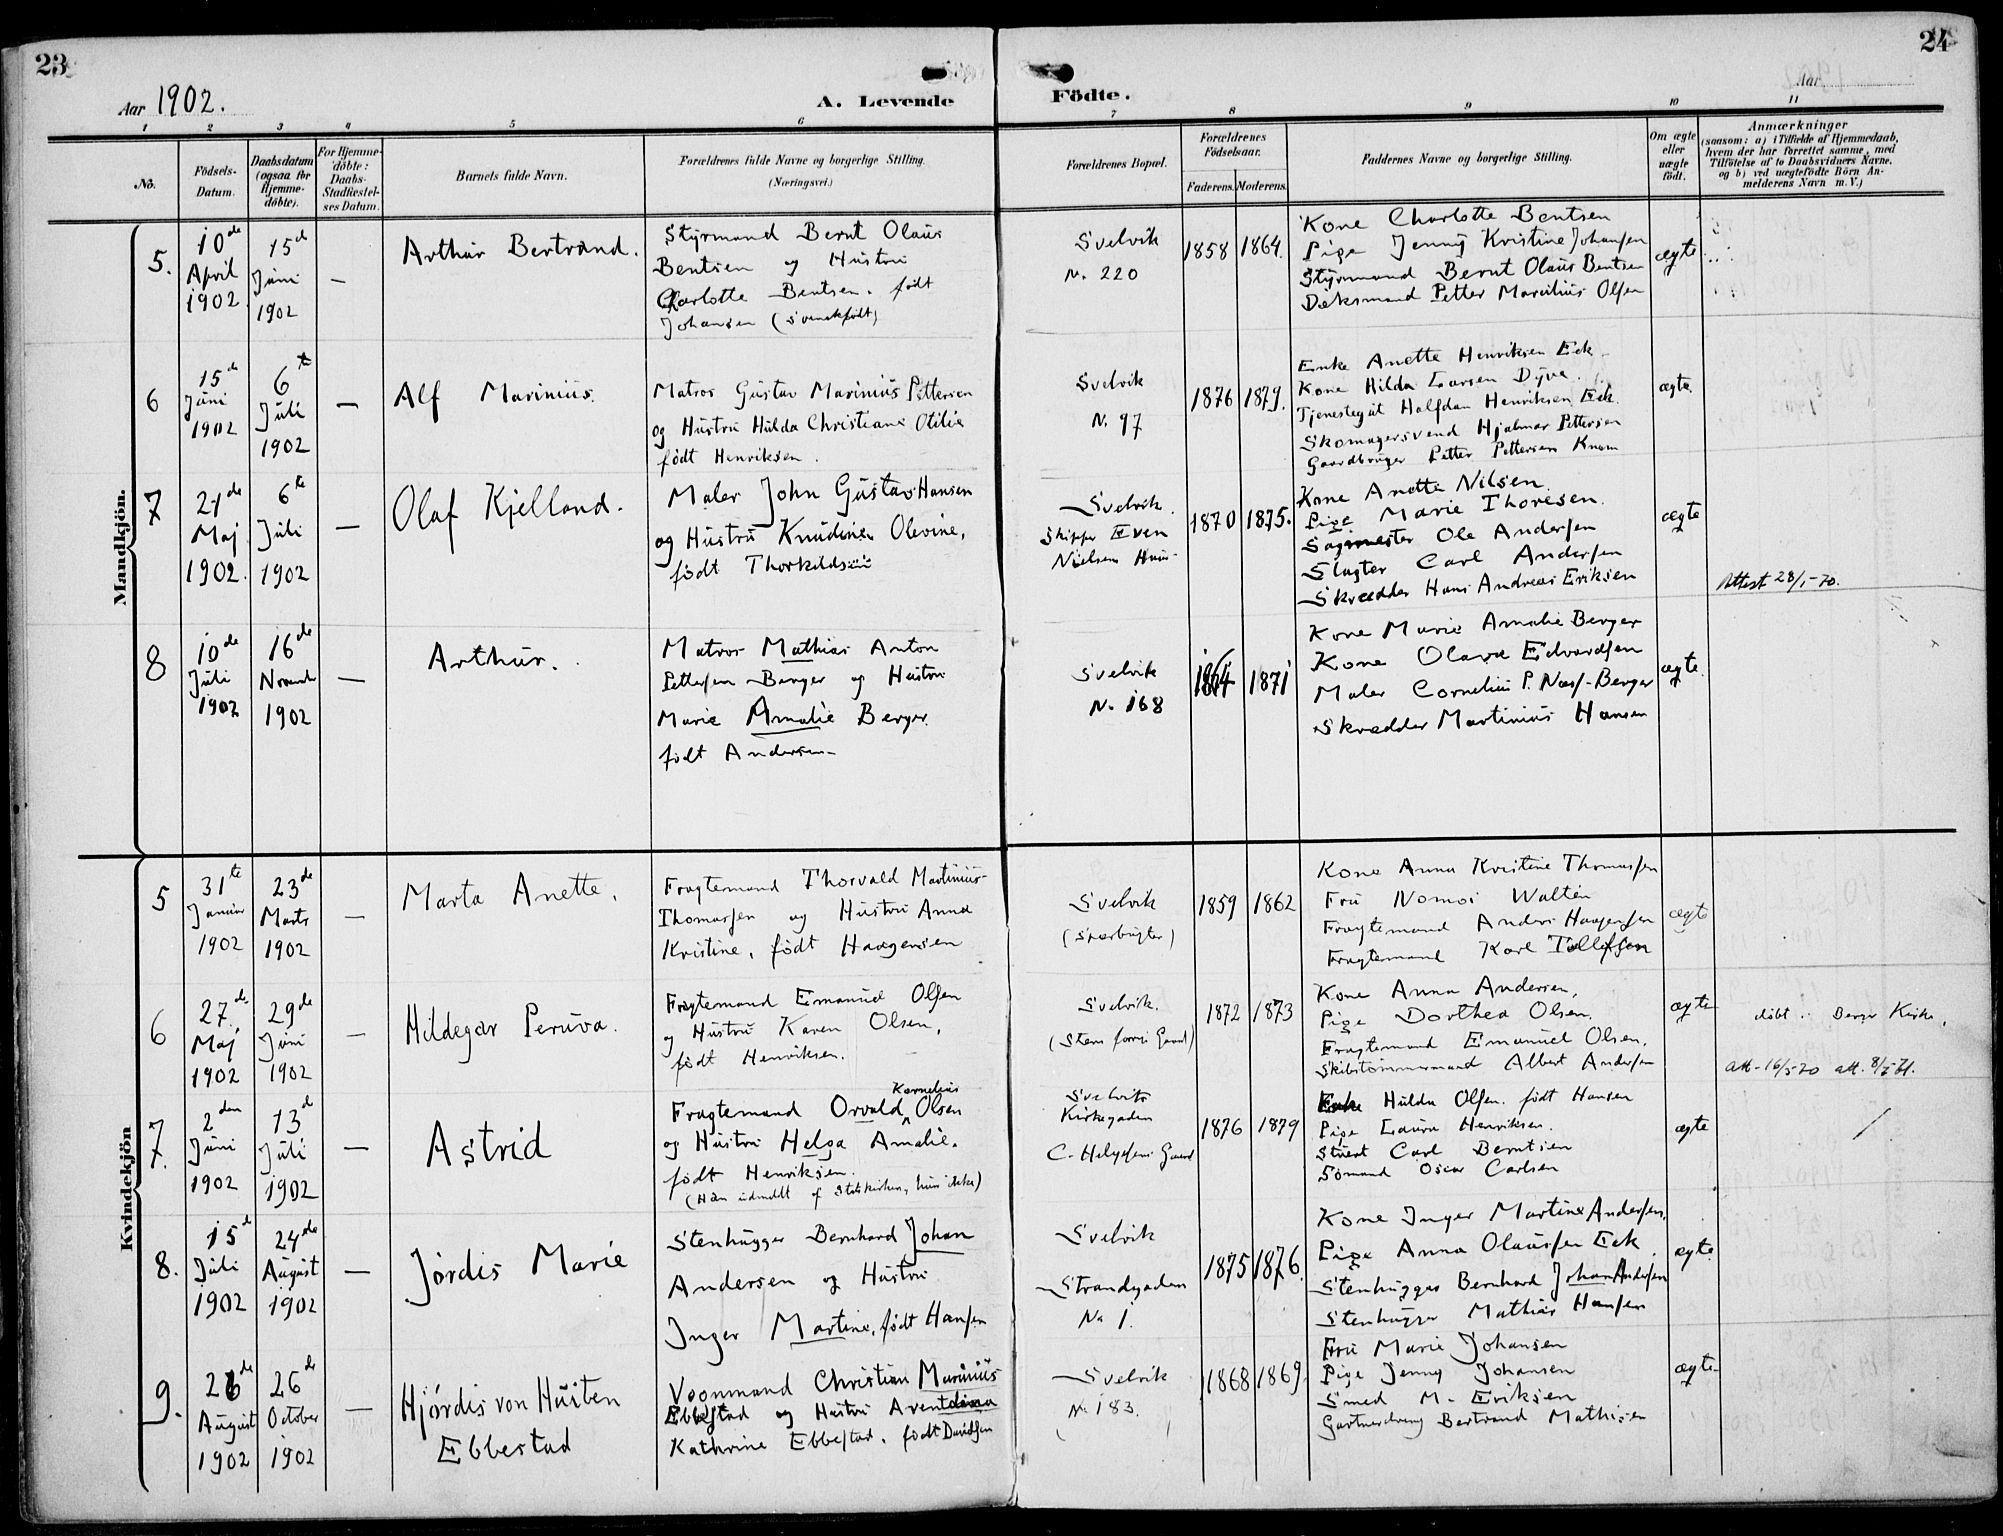 23
24
Aar 1902.
A. Levende
Födte.
Aar
1 2 3 4 5 6 7 8 9 10 11
No.
Födsels-Datum.
Daabsdatum (ogsaa for Hjemme-döbte).
For Hjemme-döbte: Daabs-Stadfæstel-ses Datum.
Barnets fulde Navn.
Forældrenes fulde Navne og borgerlige Stilling.
(Næringsvei.)
Forældrenes Bopæl.
Forældrenes Födselsaar.
Faderens. Moderens.
Faddernes Navne og borgerlige Stilling.
Om ægte eller uægte födt.
Anmærkninger
(saasom: a) i Tilfælde af Hjemmedaab, hvem der har forrettet samme, med Tilföielse af to Daabsvidners Navne, og b) ved uægtefödte Börn An-melderens Navn m. V.)
Mandkjön.
5.
10de April 1902.
15de Juni 1902
—
Arthur Bertrand.
Styrmand Bernt Olaus
Bentsen og Hustru
Charlotte Bentsen. født
Johansen (svenskfødt)
Svelvik
N. 220
1858 1864.
Kone Charlotte Bentsen
Pige Jenny Kristine Johansen
Styrmand Bernt Olaus Bentsen
Dæksmand Petter Marelius Olsen
ægte
6
15de Juni 1902
6te Juli 1902
—
Alf Marinius.
Matros Gustav Marinius Pettersen
og Hustru Hulda Christiane Otilie
født Henriksen.
Svelvik
N. 97
1876 1879.
Enke Anette Henriksen Eek
Kone Hilda Larsen Dyve.
Tjenestegut Halfdan Henriksen Eek.
Skomagersvend Hjalmar Pettersen
Gaardbruger Petter Pettersen Knem
ægte
7
21de Maj 1902.
6te Juli 1902
—
Olaf Kjelland.
Maler John Gustav Hansen
og Hustru Knudine Olevine,
født Thorkildsen
Svelvik.
Skipper Even
Nielsens Huus
1870 1875.
Kone Anette Nilsen.
Pige Marie Thoresen.
Sagmester Ole Andersen
Slagter Carl Andersen
Skrædder Hans Andreas Eriksen
ægte
Attest 28/1-70.
8
10de Juli 1902
16de Novemb 1902
—
Arthur.
Matros Mathias Anton
Pettersen Berger og Hustru
Marie Amalie Berger
født Andersen
Svelvik
N. 168
1864 1871
Kone Marie Amalie Berger
Kone Olava Edvardsen
Maler Cornelius P. Næss-Berger
Skrædder Martinius Hansen
ægte
Kvindekjön
5
31te Januar 1902
23de Marts 1902
—
Marta Anette.
Fragtemand Thorvald Martinius
Thomassen og Hustru Anna
Kristine, født Haagensen
Svelvik
(Størbugten)
1859 1862
Kone Anna Kristine Thomassen
Fru Nomoi Waltin
Fragtemand Anders Haagensen
Fragtemand Karl Tollefsen
ægte
6
27de Maj 1902
29de Juni 1902
—
Hildegar Peruva.
Fragtemand Emanuel Olsen
og Hustru Karen Olsen,
født Henriksen.
Svelvik.
1872 1873
Kone Anna Andersen,
Pige Dorthea Olsen.
Fragtemand Emanuel Olsen.
Skibstømmermand Albert Andersen
ægte
døbt i Berger Kirke.
att-16/5-70 att. 8/5-81.
7.
2den Juni 1902
13de Juli 1902
—
Astrid
Fragtemand Orvald Kornelius Olsen
og Hustru Helga Amalie.
født Henriksen.
(Han udmeldt af Statskirken, hun ikke)
Svelvik
Kirkegaden
C. Helgesens Gaard
1876 1879
Hulda Olsen. født Hansen
Pige Laura Henriksen.
Stuert Carl Berntsen
Sømand Oscar Carlsen
ægte
8.
15de Juli 1902
24de August 1902
—
Jørdis Marie
Stenhugger Bernhard Johan
Andersen og Hustru
Inger Martine, født Hansen
Svelvik
Strandgaden
No 1.
1875 1876.
Kone Inger Martine Andersen.
Pige Anna Olaussen Eek
Stenhugger Bernhard Johan Andersen
Stenhugger Mathias Hansen
ægte
9.
26de August 1902
26de October 1902
—
Hjørdis von Husten
Ebbestad
Vognmand Christian Marinius
Ebbestad og Hustru Aventina
Kathrine Ebbestad. født Davidsen
Svelvik
N. 183.
1868 1869
Fru Marie Johansen
Pige Jenny Johansen
Smed M. Eriksen
Gartnerdreng Bertrand Mathisen
ægte